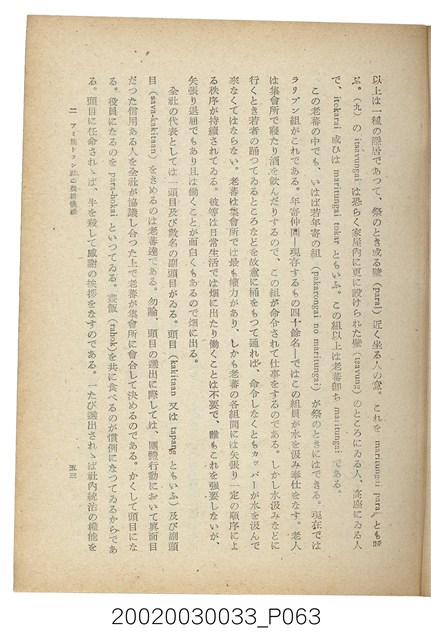 以上は一種の階級であつて、祭のとき或る壁 (parai) 近く坐る人の意。これを maritungai parai とも呼
ぶ。(九) の itaavungai は恐らく家屋内に更に設けられた のところにゐる人、高座にゐる人
で、itokarai 或ひは maritungai tokar ともいふ。この組以上は老蕃卽ち maritungai である。
この老蕃の中でも、いはば若年寄の組 (pakarongai no maritungai) が祭のときにはできる。現在では
ラリブン組がこれである。年寄仲間―現存するもの四十餘名―ではこの組員が水を汲み奉仕をなす。老人
は集會所で寢たり酒を飮んだりするので、この組が命令されて仕事をするのである。しかし水汲みなどに
行くとき若者の踊つてゐるところなどを故意に桶をもつて通れば、命令しなくともカッパーが水を汲んで
來なくてはならない。老蕃は集會所では最も權力があり、しかも老蕃の各組間には矢張り一定の順序によ
る秩序が持續されてゐる。彼等は日常生活では畑に出たり働くことは不要で、誰もこれを强要しないが、
矢張り退屈でもあり且は働くことが面白くもあるので畑に出る。
全社の代表としては一頭目及び數名の副頭目がゐる。頭目 (kakitaan 又は tapang ともいふ) 及び副頭
目 (sava-kakitaan) をきめるのは老蕃達である。勿論、頭目の選出に際しては、團體行動において眞面目
だつた信用ある人を全社が協議し合つた上で老蕃が集會所に會合して決めるのである。かくして頭目にな
る。役員になるのを para-hokai といつてゐる。 を共に食べるのが慣例になつてゐるからであ
る。頭目に任命されゝば、牛を殺して感謝の挨拶をなすのである。一たび選出されゝば社內統治の權能を
二 アミ族 社の
五三
20020030033_P063